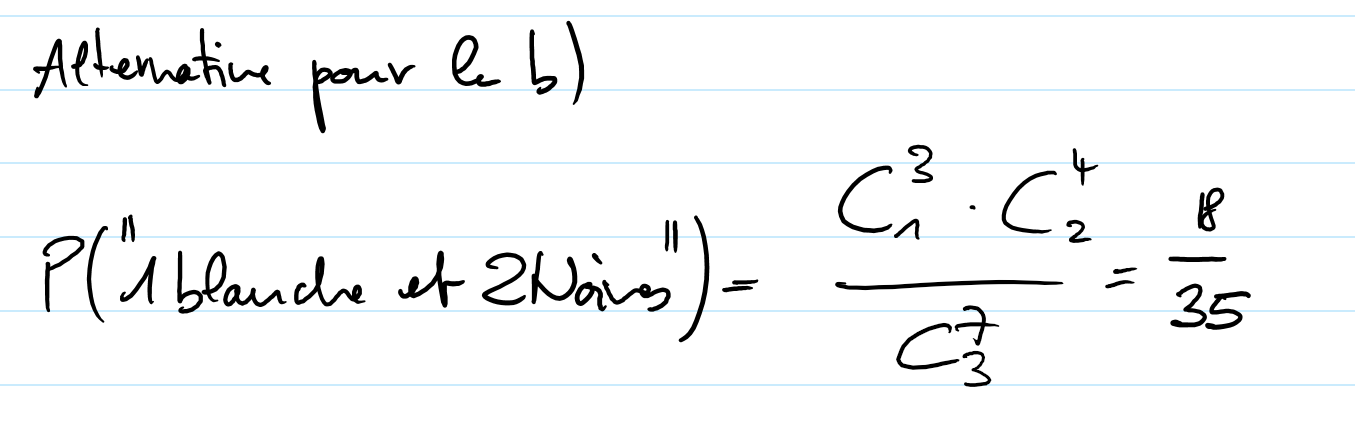 Alternative pour le b)
P("1 blanche et 2 Noires") = \frac{C_1^3 \cdot C_2^4}{C_3^7} = \frac{18}{35}